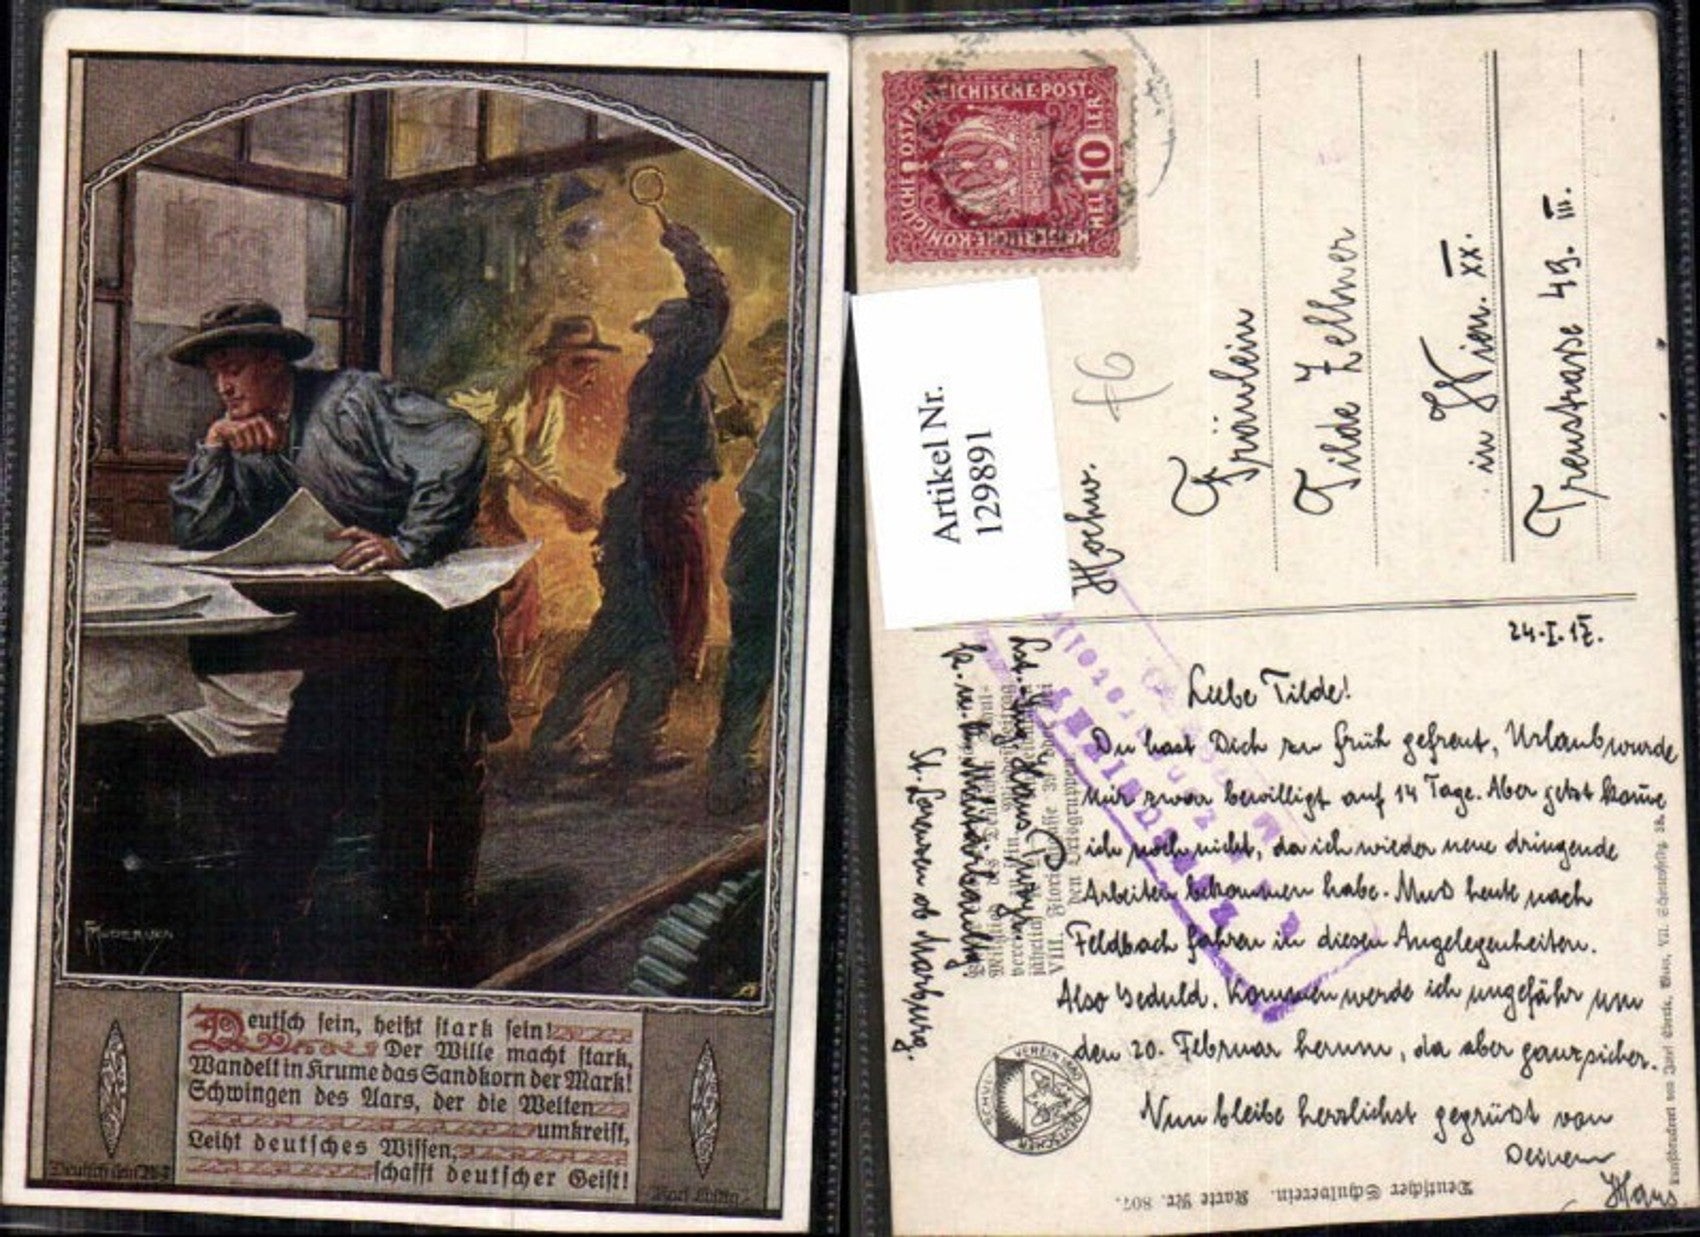 Deutsch sein, heißt stark sein!
Der Wille macht stark,
Wandelt in Krume das Sandkorn der Mark!
Schwingen des Aars, der die Welten
umkreist,
Leiht deutsches Wissen,
schafft deutscher Geist!
KÖNIGLICHE ÖSTERREICHISCHE POST
HELLER 10
Artikel Nr.
129891
76
Hochw.
Fräulein
Tilde Zellner
in Wien. XX.
Treustrasse 49. III.
24.I.17.
Liebe Tilde!
Du hast Dich zu früh gefreut, Urlaub wurde
mir zwar bewilligt auf 14 Tage. Aber jetzt komme
ich noch nicht, da ich wieder neue dringende
Arbeiten bekommen habe. Muß heute nach
Feldbach fahren in diesen Angelegenheiten.
Also Geduld. Kommen werde ich ungefähr um
den 20. Februar herum, da aber ganz sicher.
Nun bleibe herzlichst gegrüßt von
Deinem
Hans
k. u. k. Militärbauleitg
St. Lorenzen ob Marburg.
VEREIN DEUTSCHER SCHUL
Deutscher Schulverein. Karte Nr. 807.